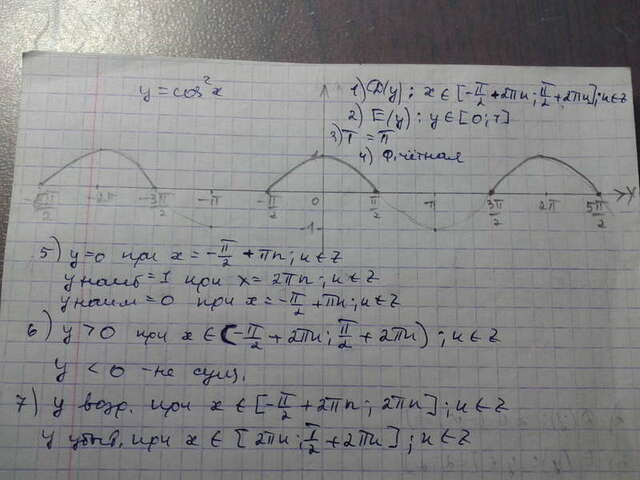 y = cos²x
1) D(y): x ∈ [-π/2 + 2πn; π/2 + 2πn]; n ∈ Z
2) E(y): y ∈ [0; 1]
3) T = π
4) Ф. чётная
1
-5π/2 -2π -3π/2 -π -π/2 0 π/2 π 3π/2 2π 5π/2 X
-1
5) y=0 при x = -π/2 + πn; n ∈ Z
y наиб = 1 при x = 2πn; n ∈ Z
y наим = 0 при x = -π/2 + πn; n ∈ Z
6) y > 0 при x ∈ (-π/2 + 2πn; π/2 + 2πn); n ∈ Z
y < 0 - не сущ.
7) y возр. при x ∈ [-π/2 + 2πn; 2πn]; n ∈ Z
y убыв. при x ∈ [2πn; π/2 + 2πn]; n ∈ Z